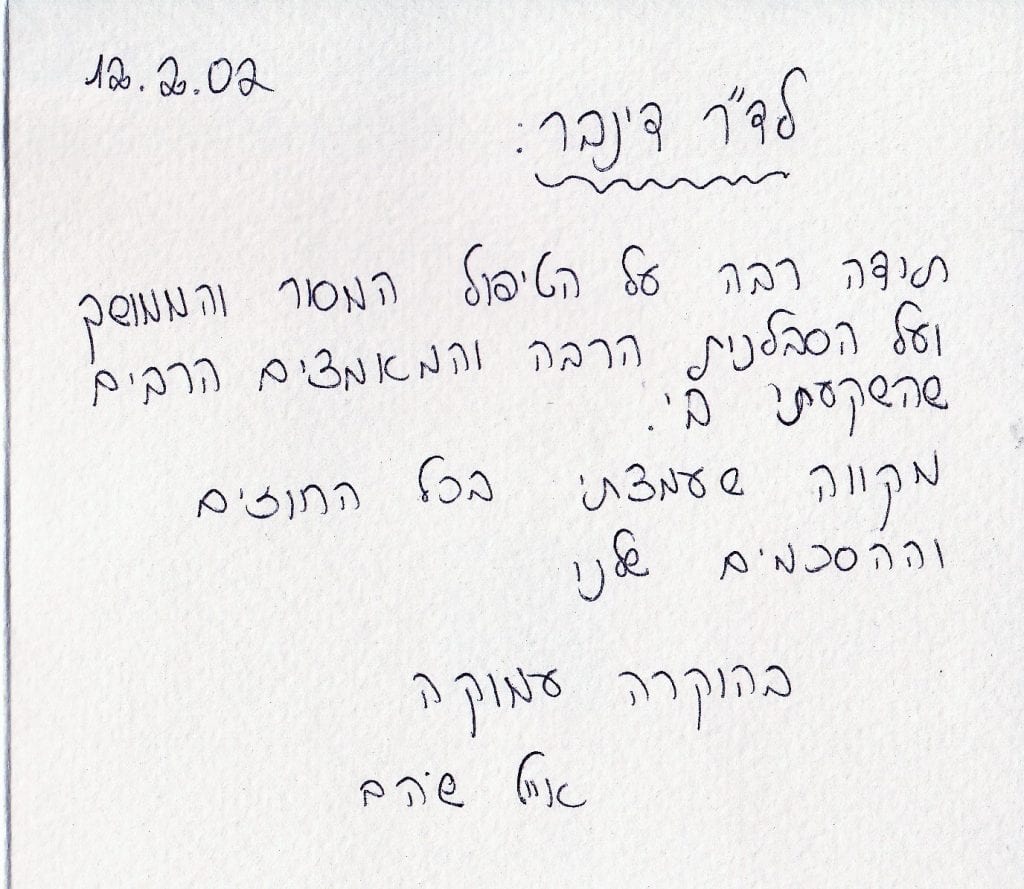 12.2.02
לד"ר דינבר:
תודה רבה על הטיפול המסור והממושק
ועל הסבלנית הרבה והמאמצים הרבים
שהשקעתי בי.
מקווה שעמצתי בכל החוזים
וההסכמים שלנו
בהוקרה עמוקה
אייל שהם